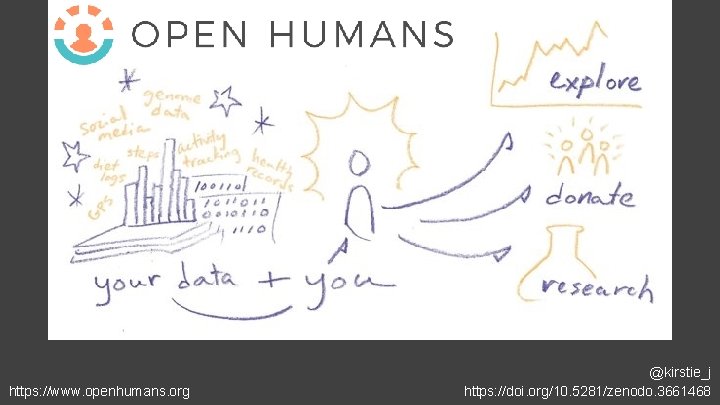 OPEN HUMANS
explore
genome
data
social
media
activity
tracking
steps
diet
logs
healthy
records
GPS
1001101
1011011
0010110
1110
donate
your data + you
research
@kirstie_j
https://www.openhumans.org
https://doi.org/10.5281/zenodo.3661468